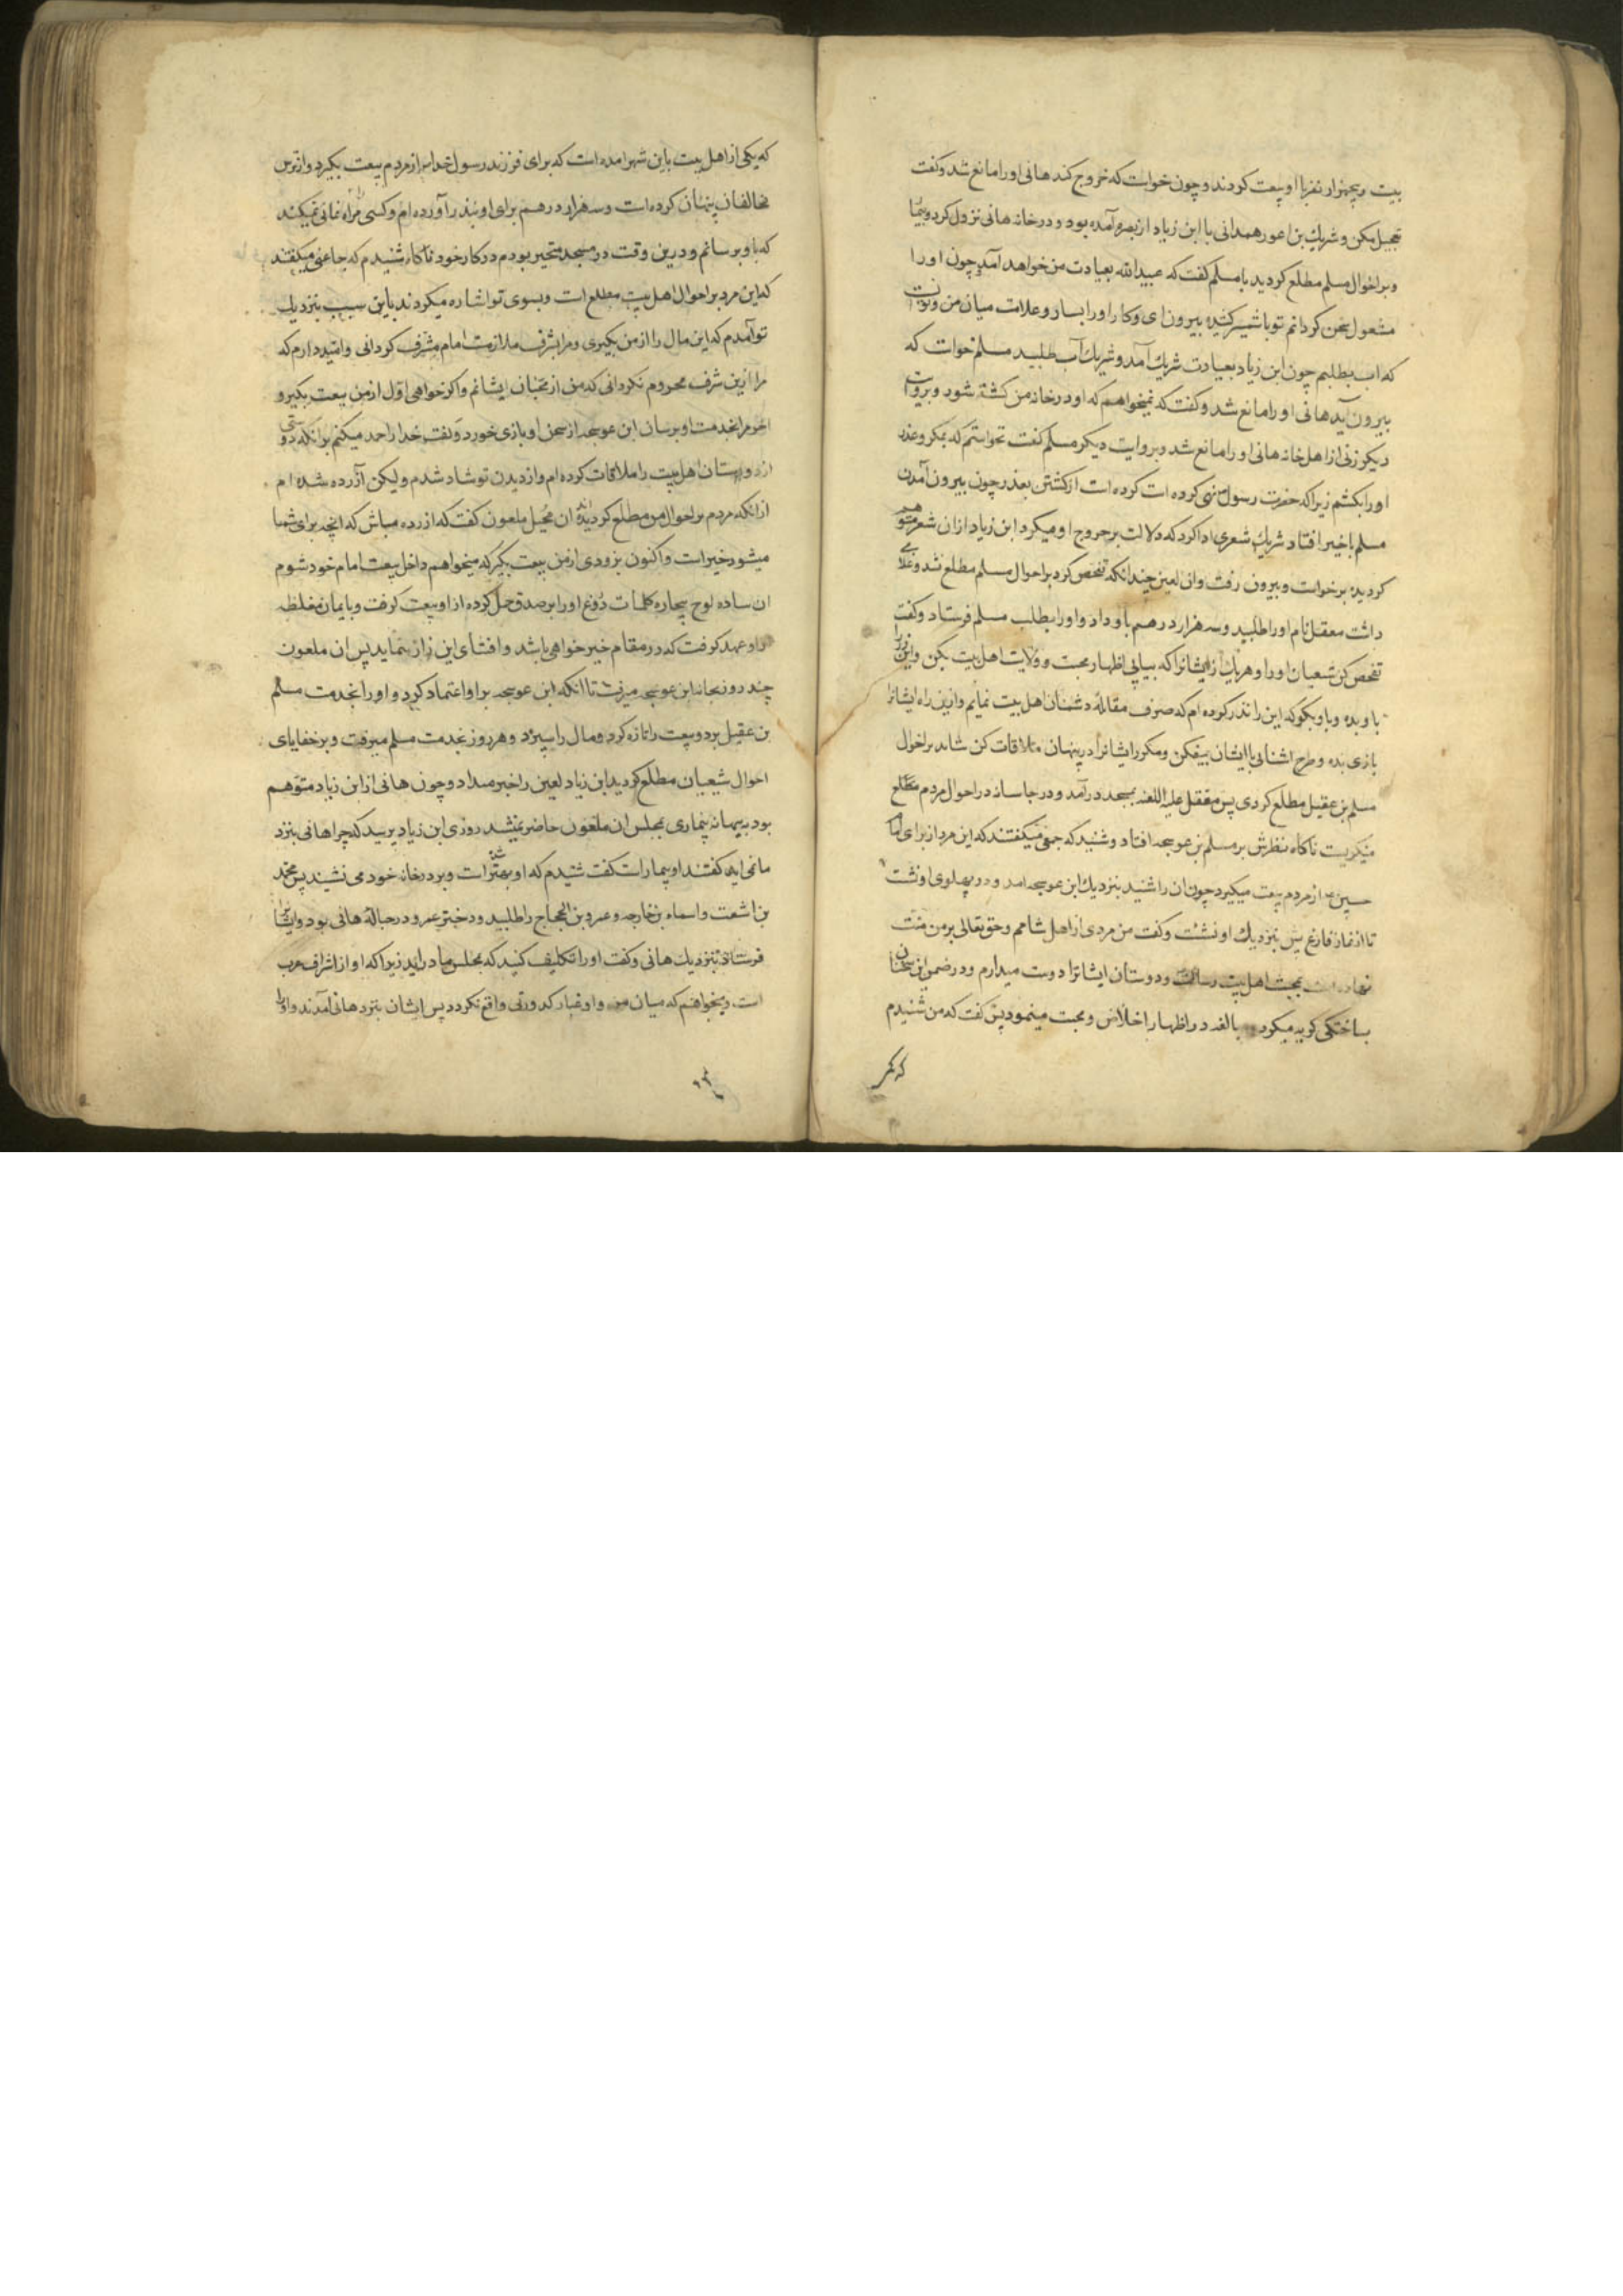 بیت و پنجهزار نفر با او بیعت کردند و چون خواست که خروج کند هانی او را مانع شد و گفت
تعجیل مکن و شریک بن اعور همدانی با ابن زیاد از بصره آمده بود و در خانه هانی نزول کرد و بیمار
و بر احوال مسلم مطلع گردید با مسلم گفت که عبیدالله بعیادت من خواهد آمد چون او را
مشغول سخن گردانم تو با شمشیر کشیده بیرون ای و کار او را بساز و علامت میان من و تو انست
که اب بطلبم چون ابن زیاد بعیادت شریک آمد و شریک آب طلبید مسلم خواست که
بیرون آید هانی او را مانع شد و گفت که نمیخواهم که او در خانه من کشته شود و بروایت
دیگر زنی از اهل خانه هانی او را مانع شد و بروایت دیگر مسلم گفت نخواستم که بمکر و غدر
او را بکشم زیرا که حضرت رسول نهی کرده است کرده است از کشتن بغدر چون بیرون آمدن
مسلم باخیر افتاد شریک شعری ادا کرد که دلالت بر خروج او میکرد ابن زیاد از ان شعر متوهم
گردیده برخواست و بیرون رفت و ان لعین چندانکه تفحص کرد بر احوال مسلم مطلع نشد و غلامی
داشت معقل نام او را طلبید و سه هزار درهم باو داد و او را بطلب مسلم فرستاد و گفت
تفحص کن شعیان او را و هر یک از ایشانرا که بیابی اظهار محبت و ولایت اهل بیت بکن و این زر را
باو بده و باو بگو که این را نذر کرده ام که صرف مقاتله دشمنان اهل بیت نمایم و ازین راه ایشانرا
بازی بده و طرح اشنایی با ایشان بیفکن و مکرر ایشانرا در پنهان ملاقات کن شاید بر احوال
مسلم بن عقیل مطلع کردی پس معقل علیه اللعنه بمسجد در آمد و در جاسانه در احوال مردم مطلع
میگریست ناکاه نظرش بر مسلم بن عوسجه افتاد و شنید که جمعی میگفتند که این مرد از برای امام
حسین از مردم بیعت میگیرد چون ان را شنید بنزدیک ابن عوسجه امد و در پهلوی او نشست
تا از نماز فارغ پس بنزدیک او نشست و گفت من مردی از اهل شامم و حق تعالی بر من منت
نهاده است بمحبت اهل بیت رسالت و دوستان ایشانرا دوست میدارم و در ضمن این سخنان
بساختگی گریه میکرد و مبالغه در اظهار اخلاص و محبت مینمود پس گفت که من شنیدم
که یکی از اهل بیت باین شهر امده است که برای فرزند رسول خدا از مردم بیعت بگیرد و از ترس
مخالفان پنهان کرده است و سه هزار درهم برای او بنذر آورده ام و کسی مرا راه نمائی نمیکند
که باو برسانم و درین وقت در مسجد متحیر بودم در کار خود ناکاه شنیدم که جماعتی میگفتند
که این مرد بر احوال اهل بیت مطلع است و بسوی تو اشاره میکردند باین سبب بنزدیک
تو آمدم که این مال را از من بگیری و مرا بشرف ملازمت امام مشرف گردانی و امیدوارم که
مرا ازین شرف محروم نگردانی که من از محبان ایشانم و اگر خواهی اول از من بیعت بگیر و
اخر مرا بخدمت او برسان ابن عوسجه از سخن او بازی خورد و گفت خدا را حمد میکنم بر انکه دوستی
از دوستان اهل بیت را ملاقات کرده ام و از دیدن تو شاد شدم ولیکن آزرده شده ام
از انکه مردم بر احوال من مطلع گردیده اند ان محیل ملعون گفت که ازرده مباش که انچه برای شما
میشود خیر است و اکنون بزودی از من بیعت بگیر که میخواهم داخل بیعت امام خود شوم
ان ساده لوح بیچاره کلمات دروغ او را بر صدق حمل کرده از او بیعت گرفت و بایمان مغلظه
از او عهد گرفت که در مقام خیر خواهی باشد و افشای این راز ننماید پس ان ملعون
چند روز بخانه ابن عوسجه میرفت تا انکه ابن عوسجه بر او اعتماد کرد و او را بخدمت مسلم
بن عقیل برد و بیعت را تازه کرد و مال را سپرد و هر روز بخدمت مسلم میرفت و بر خفایای
احوال شیعیان مطلع گردید ابن زیاد لعین را خبر میداد و چون هانی از ابن زیاد متوهم
بود به بهانه بیماری بمجلس ان ملعون حاضر نمیشد روزی ابن زیاد پرسید که چرا هانی بنزد
ما نمی اید گفتند او بیمار است گفت شنیدم که او بهتر شده است و بر در خانه خود می نشیند پس محمد
بن اشعث و اسماء بن خارجه و عمرو بن الحجاج را طلبید و دختر عمرو در حباله هانی بود و ایشان را
فرستاد بنزدیک هانی و گفت او را تکلیف کنید که بمجلس ما در اید زیرا که او از اشراف عرب
است و نمیخواهم که میان من و او غبار کدورتی واقع نگردد پس ایشان بنزد هانی آمدند و او را